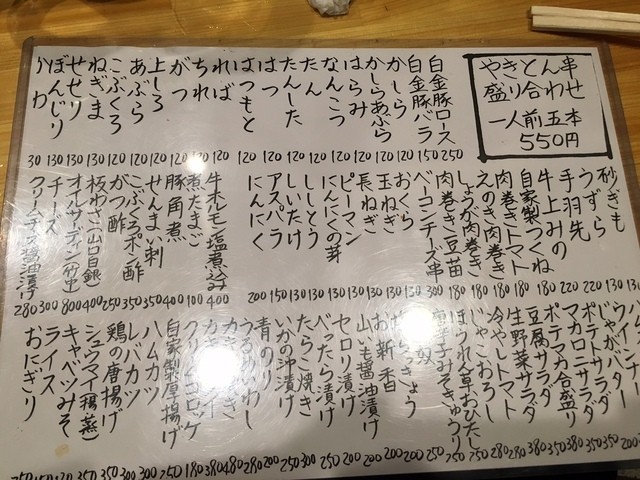 やきとん串
盛り合わせ
一人前五本
550円
白金豚ロース 250
白金豚バラ 150
かしら 120
かしらあぶら 120
はらみ 120
なんこつ 120
たんした 120
たん 120
はつ 120
はつもと 120
ればー 120
ちれ 120
がつ 120
上しろ 120
あぶら 120
こぶくろ 120
ねぎま 130
せせり 130
ぼんじり 130
かわ
砂ぎも
うずら
手羽先
牛上みの
自家製つくね
肉巻きトマト
えのき肉巻き
しょうが肉巻き
肉巻き豆苗
ベーコンチーズ串
おくら
玉ねぎ
長ねぎ
ピーマン
にんにくの芽
ししとう
しいたけ
アスパラ
にんにく
牛ホルモン塩煮込み 400
煮たまご 100
豚角煮 400
せんまい刺 350
こぶくろポン酢 350
がつ酢 250
板わさ(山口白銀) 400
オイルサーディン(竹中) 800
チーズ 300
クリームチーズ醤油漬け 280
ポテトサラダ
マカロニサラダ
ポテマカ合盛り
豆腐サラダ
生野菜サラダ
冷やしトマト
じゃこおろし
ほうれん草おひたし
みそきゅうり
らっきょう
お新香
山いも醤油漬け
セロリ漬け
べったら漬け
たらこ焼き
いかの沖漬け
青のり
うるめいわし
クリームコロッケ
自家製厚揚げ
ハムカツ
レバカツ
鶏の唐揚げ
シュウマイ(揚、蒸)
キャベツみそ
ライス
おにぎり